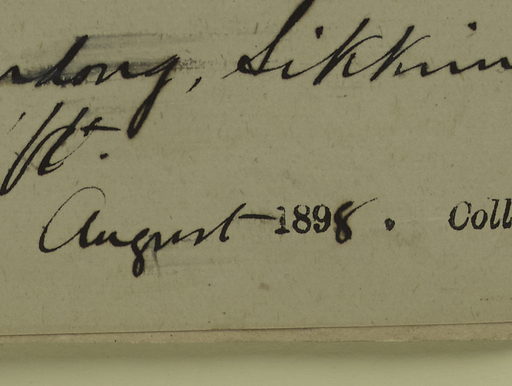 rdong, Sikkim
ft.
August 1898. Coll